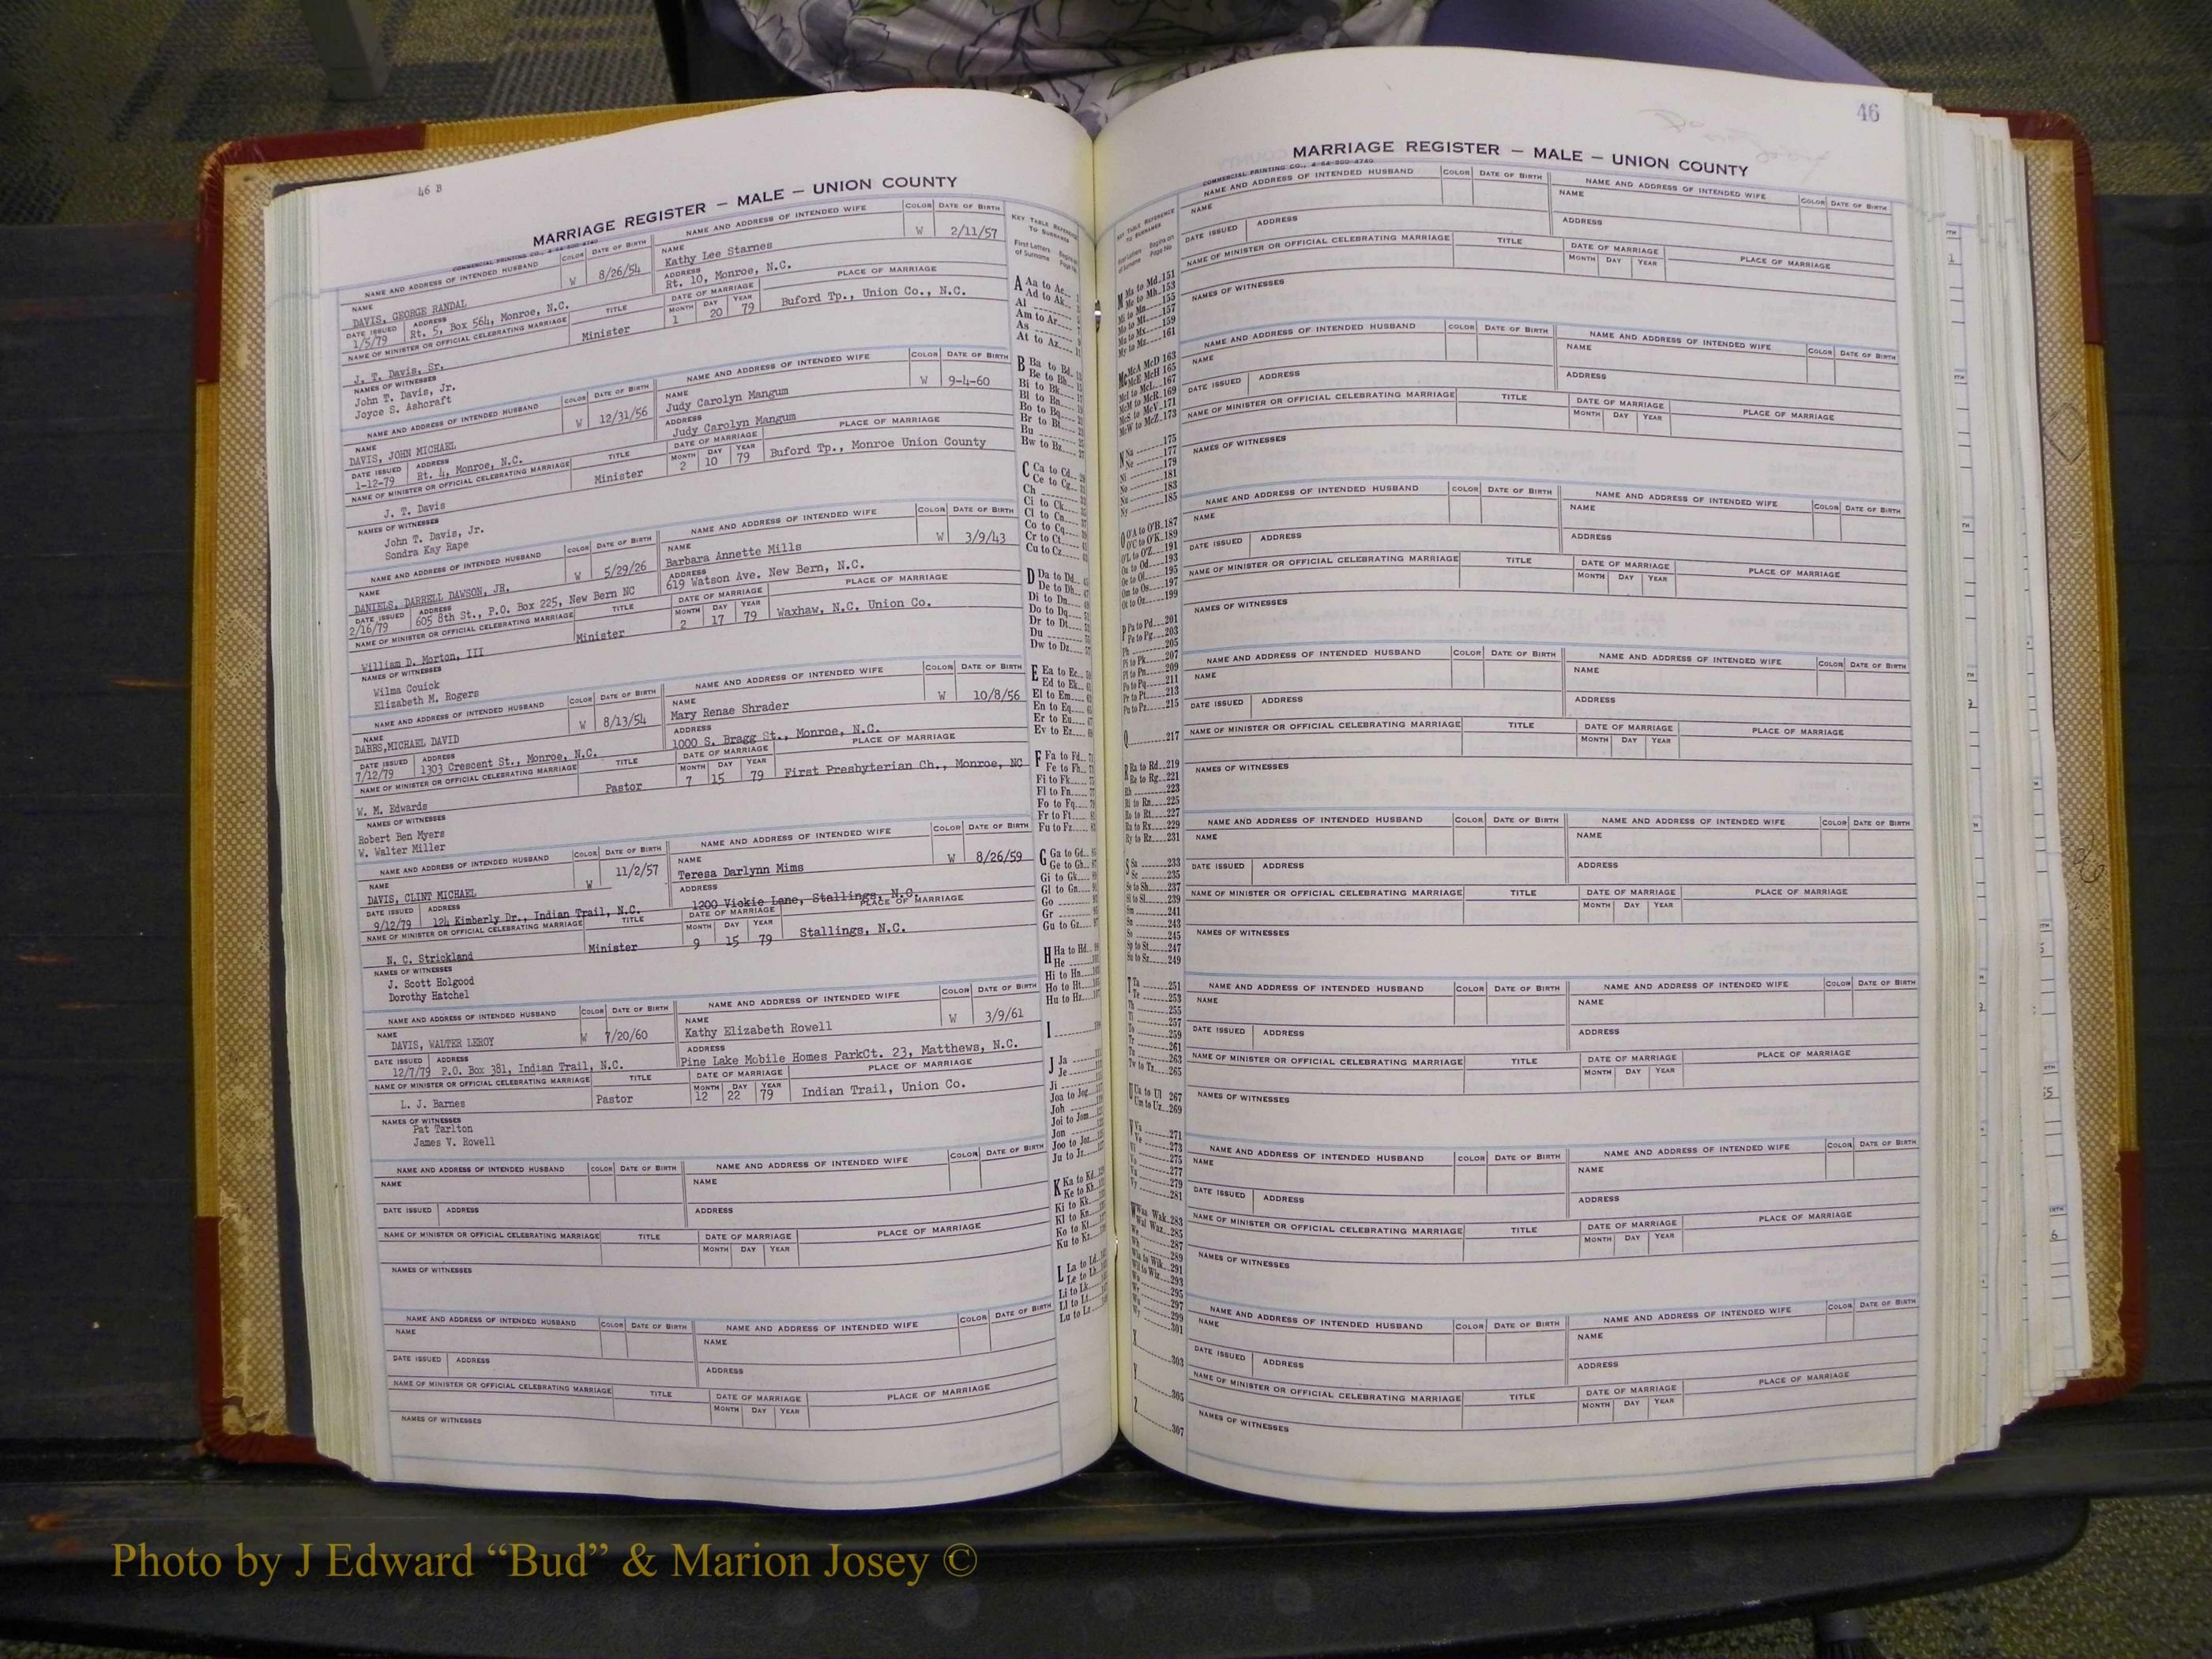 46 B
MARRIAGE REGISTER — MALE — UNION COUNTY
COMMERCIAL PRINTING CO., 4-64-500-4740
NAME AND ADDRESS OF INTENDED HUSBAND COLOR DATE OF BIRTH NAME AND ADDRESS OF INTENDED WIFE COLOR DATE OF BIRTH
NAME W 8/26/54 NAME W 2/11/57
DAVIS, GEORGE RANDAL Kathy Lee Starnes
DATE ISSUED ADDRESS ADDRESS
1/5/79 Rt. 5, Box 564, Monroe, N.C. Rt. 10, Monroe, N.C.
NAME OF MINISTER OR OFFICIAL CELEBRATING MARRIAGE TITLE DATE OF MARRIAGE PLACE OF MARRIAGE
MONTH DAY YEAR
J. T. Davis, Sr. Minister 1 20 79 Buford Tp., Union Co., N.C.
NAMES OF WITNESSES
John T. Davis, Jr.
Joyce S. Ashcraft
NAME AND ADDRESS OF INTENDED HUSBAND COLOR DATE OF BIRTH NAME AND ADDRESS OF INTENDED WIFE COLOR DATE OF BIRTH
NAME W 12/31/56 NAME W 9-4-60
DAVIS, JOHN MICHAEL Judy Carolyn Mangum
DATE ISSUED ADDRESS ADDRESS
1-12-79 Rt. 4, Monroe, N.C. Judy Carolyn Mangum
NAME OF MINISTER OR OFFICIAL CELEBRATING MARRIAGE TITLE DATE OF MARRIAGE PLACE OF MARRIAGE
MONTH DAY YEAR
J. T. Davis Minister 2 10 79 Buford Tp., Monroe Union County
NAMES OF WITNESSES
John T. Davis, Jr.
Sondra Kay Rape
NAME AND ADDRESS OF INTENDED HUSBAND COLOR DATE OF BIRTH NAME AND ADDRESS OF INTENDED WIFE COLOR DATE OF BIRTH
NAME W 5/29/26 NAME W 3/9/43
DANIELS, DARRELL DAWSON, JR. Barbara Annette Mills
DATE ISSUED ADDRESS ADDRESS
2/16/79 605 8th St., P.O. Box 225, New Bern NC 619 Watson Ave. New Bern, N.C.
NAME OF MINISTER OR OFFICIAL CELEBRATING MARRIAGE TITLE DATE OF MARRIAGE PLACE OF MARRIAGE
MONTH DAY YEAR
William D. Morton, III Minister 2 17 79 Waxhaw, N.C. Union Co.
NAMES OF WITNESSES
Wilma Couick
Elizabeth M. Rogers
NAME AND ADDRESS OF INTENDED HUSBAND COLOR DATE OF BIRTH NAME AND ADDRESS OF INTENDED WIFE COLOR DATE OF BIRTH
NAME W 8/13/54 NAME W 10/8/56
DABBS,MICHAEL DAVID Mary Renae Shrader
DATE ISSUED ADDRESS ADDRESS
7/12/79 1303 Crescent St., Monroe, N.C. 1000 S. Bragg St., Monroe, N.C.
NAME OF MINISTER OR OFFICIAL CELEBRATING MARRIAGE TITLE DATE OF MARRIAGE PLACE OF MARRIAGE
MONTH DAY YEAR
W. M. Edwards Pastor 7 15 79 First Presbyterian Ch., Monroe, NC
NAMES OF WITNESSES
Robert Ben Myers
W. Walter Miller
NAME AND ADDRESS OF INTENDED HUSBAND COLOR DATE OF BIRTH NAME AND ADDRESS OF INTENDED WIFE COLOR DATE OF BIRTH
NAME W 11/2/57 NAME W 8/26/59
DAVIS, CLINT MICHAEL Teresa Darlynn Mims
DATE ISSUED ADDRESS ADDRESS
9/12/79 124 Kimberly Dr., Indian Trail, N.C. 1200 Vickie Lane, Stallings, N.C.
NAME OF MINISTER OR OFFICIAL CELEBRATING MARRIAGE TITLE DATE OF MARRIAGE PLACE OF MARRIAGE
MONTH DAY YEAR
N. C. Strickland Minister 9 15 79 Stallings, N.C.
NAMES OF WITNESSES
J. Scott Holgood
Dorothy Hatchel
NAME AND ADDRESS OF INTENDED HUSBAND COLOR DATE OF BIRTH NAME AND ADDRESS OF INTENDED WIFE COLOR DATE OF BIRTH
NAME W 7/20/60 NAME W 3/9/61
DAVIS, WALTER LEROY Kathy Elizabeth Rowell
DATE ISSUED ADDRESS ADDRESS
12/7/79 P.O. Box 381, Indian Trail, N.C. Pine Lake Mobile Homes ParkCt. 23, Matthews, N.C.
NAME OF MINISTER OR OFFICIAL CELEBRATING MARRIAGE TITLE DATE OF MARRIAGE PLACE OF MARRIAGE
MONTH DAY YEAR
L. J. Barnes Pastor 12 22 79 Indian Trail, Union Co.
NAMES OF WITNESSES
Pat Tarlton
James V. Rowell
NAME AND ADDRESS OF INTENDED HUSBAND COLOR DATE OF BIRTH NAME AND ADDRESS OF INTENDED WIFE COLOR DATE OF BIRTH
NAME NAME
DATE ISSUED ADDRESS ADDRESS
NAME OF MINISTER OR OFFICIAL CELEBRATING MARRIAGE TITLE DATE OF MARRIAGE PLACE OF MARRIAGE
MONTH DAY YEAR
NAMES OF WITNESSES
NAME AND ADDRESS OF INTENDED HUSBAND COLOR DATE OF BIRTH NAME AND ADDRESS OF INTENDED WIFE COLOR DATE OF BIRTH
NAME NAME
DATE ISSUED ADDRESS ADDRESS
NAME OF MINISTER OR OFFICIAL CELEBRATING MARRIAGE TITLE DATE OF MARRIAGE PLACE OF MARRIAGE
MONTH DAY YEAR
NAMES OF WITNESSES
KEY TABLE REFERENCE
TO SURNAME
First Letters
of Surname
A Aa to Ac
Ad to Ak
Al
Am to Ar
As
At to Az
B Ba to Bd
Be to Bh
Bi to Bk
Bl to Bn
Bo to Bq
Br to Bt
Bu
Bw to Bz
C Ca to Cd
Ce to Cg
Ch
Ci to Ck
Cl to Cn
Co to Cq
Cr to Ct
Cu to Cz
D Da to Dd
De to Dh
Di to Dn
Do to Dq
Dr to Dt
Du
Dw to Dz
E Ea to Ec
Ed to Ek
El to Em
En to Eq
Er to Eu
Ev to Ez
F Fa to Fd
Fe to Fh
Fi to Fk
Fl to Fn
Fo to Fq
Fr to Ft
Fu to Fz
G Ga to Gd
Ge to Gh
Gi to Gk
Gl to Gn
Go
Gr
Gu to Gz
H Ha to Hd
He
Hi to Hn
Ho to Ht
Hu to Hz
I
J Ja
Je
Ji
Joa to Jog
Joh
Joi to Jom
Jon
Joo to Joz
Ju to Jz
K Ka to Kd
Ke to Kh
Ki to Kk
Kl to Kn
Ko to Kt
Ku to Kz
L La to Ld
Le to Lh
Li to Lk
Ll to Lt
Lu to Lz
46
MARRIAGE REGISTER — MALE — UNION COUNTY
COMMERCIAL PRINTING CO., 4-64-500-4740
KEY TABLE REFERENCE
TO SURNAME
First Letters of Surname Begins on Page No.
M Ma to Md 151
Me to Mh 153
Mi to Mn 155
Mo to Mt 157
159
My to Mz 161
McA McD 163
McE McH 165
McI to McL 167
McM to McR 169
McS to McV 171
McW to McZ 173
N Na 175
Ne 177
Ni 179
No 183
Nu 185
O O'A to O'B 187
O'C to O'K 189
O'L to O'Z 191
Oa to Od 193
Oe to Ol 195
Om to Os 197
Ot to Oz 199
P Pa to Pd 201
Pe to Pg 203
Ph 205
Pi to Pk 207
Pl to Pn 209
Po to Pq 211
Pr to Pt 213
Pu to Pz 215
Q 217
R Ra to Rd 219
Re to Rg 221
Rh 223
Ri to Rn 225
Ro to Rt 227
Ru to Rx 229
Ry to Rz 231
S Sa 233
Sc 235
Se to Sh 237
Si to Sl 239
Sm 241
Sn 243
So 245
Sp to St 247
Su to Sz 249
T Ta 251
Te 253
Th 255
Ti 257
To 259
Tr 261
Tu 263
Tw to Tz 265
U Ua to Ul 267
Um to Uz 269
V Va 271
Ve 273
Vi 275
277
279
281
W Waa Wak 283
Wal Waz 285
We 287
Wh 289
Wia to Wik 291
Wil to Wiz 293
295
297
299
X 301
Y 303
305
Z 307
NAME AND ADDRESS OF INTENDED HUSBAND COLOR DATE OF BIRTH NAME AND ADDRESS OF INTENDED WIFE COLOR DATE OF BIRTH
NAME NAME
DATE ISSUED ADDRESS ADDRESS
NAME OF MINISTER OR OFFICIAL CELEBRATING MARRIAGE TITLE DATE OF MARRIAGE PLACE OF MARRIAGE
MONTH DAY YEAR
NAMES OF WITNESSES
NAME AND ADDRESS OF INTENDED HUSBAND COLOR DATE OF BIRTH NAME AND ADDRESS OF INTENDED WIFE COLOR DATE OF BIRTH
NAME NAME
DATE ISSUED ADDRESS ADDRESS
NAME OF MINISTER OR OFFICIAL CELEBRATING MARRIAGE TITLE DATE OF MARRIAGE PLACE OF MARRIAGE
MONTH DAY YEAR
NAMES OF WITNESSES
NAME AND ADDRESS OF INTENDED HUSBAND COLOR DATE OF BIRTH NAME AND ADDRESS OF INTENDED WIFE COLOR DATE OF BIRTH
NAME NAME
DATE ISSUED ADDRESS ADDRESS
NAME OF MINISTER OR OFFICIAL CELEBRATING MARRIAGE TITLE DATE OF MARRIAGE PLACE OF MARRIAGE
MONTH DAY YEAR
NAMES OF WITNESSES
NAME AND ADDRESS OF INTENDED HUSBAND COLOR DATE OF BIRTH NAME AND ADDRESS OF INTENDED WIFE COLOR DATE OF BIRTH
NAME NAME
DATE ISSUED ADDRESS ADDRESS
NAME OF MINISTER OR OFFICIAL CELEBRATING MARRIAGE TITLE DATE OF MARRIAGE PLACE OF MARRIAGE
MONTH DAY YEAR
NAMES OF WITNESSES
NAME AND ADDRESS OF INTENDED HUSBAND COLOR DATE OF BIRTH NAME AND ADDRESS OF INTENDED WIFE COLOR DATE OF BIRTH
NAME NAME
DATE ISSUED ADDRESS ADDRESS
NAME OF MINISTER OR OFFICIAL CELEBRATING MARRIAGE TITLE DATE OF MARRIAGE PLACE OF MARRIAGE
MONTH DAY YEAR
NAMES OF WITNESSES
NAME AND ADDRESS OF INTENDED HUSBAND COLOR DATE OF BIRTH NAME AND ADDRESS OF INTENDED WIFE COLOR DATE OF BIRTH
NAME NAME
DATE ISSUED ADDRESS ADDRESS
NAME OF MINISTER OR OFFICIAL CELEBRATING MARRIAGE TITLE DATE OF MARRIAGE PLACE OF MARRIAGE
MONTH DAY YEAR
NAMES OF WITNESSES
NAME AND ADDRESS OF INTENDED HUSBAND COLOR DATE OF BIRTH NAME AND ADDRESS OF INTENDED WIFE COLOR DATE OF BIRTH
NAME NAME
DATE ISSUED ADDRESS ADDRESS
NAME OF MINISTER OR OFFICIAL CELEBRATING MARRIAGE TITLE DATE OF MARRIAGE PLACE OF MARRIAGE
MONTH DAY YEAR
NAMES OF WITNESSES
NAME AND ADDRESS OF INTENDED HUSBAND COLOR DATE OF BIRTH NAME AND ADDRESS OF INTENDED WIFE COLOR DATE OF BIRTH
NAME NAME
DATE ISSUED ADDRESS ADDRESS
NAME OF MINISTER OR OFFICIAL CELEBRATING MARRIAGE TITLE DATE OF MARRIAGE PLACE OF MARRIAGE
MONTH DAY YEAR
NAMES OF WITNESSES
Photo by J Edward “Bud” & Marion Josey ©